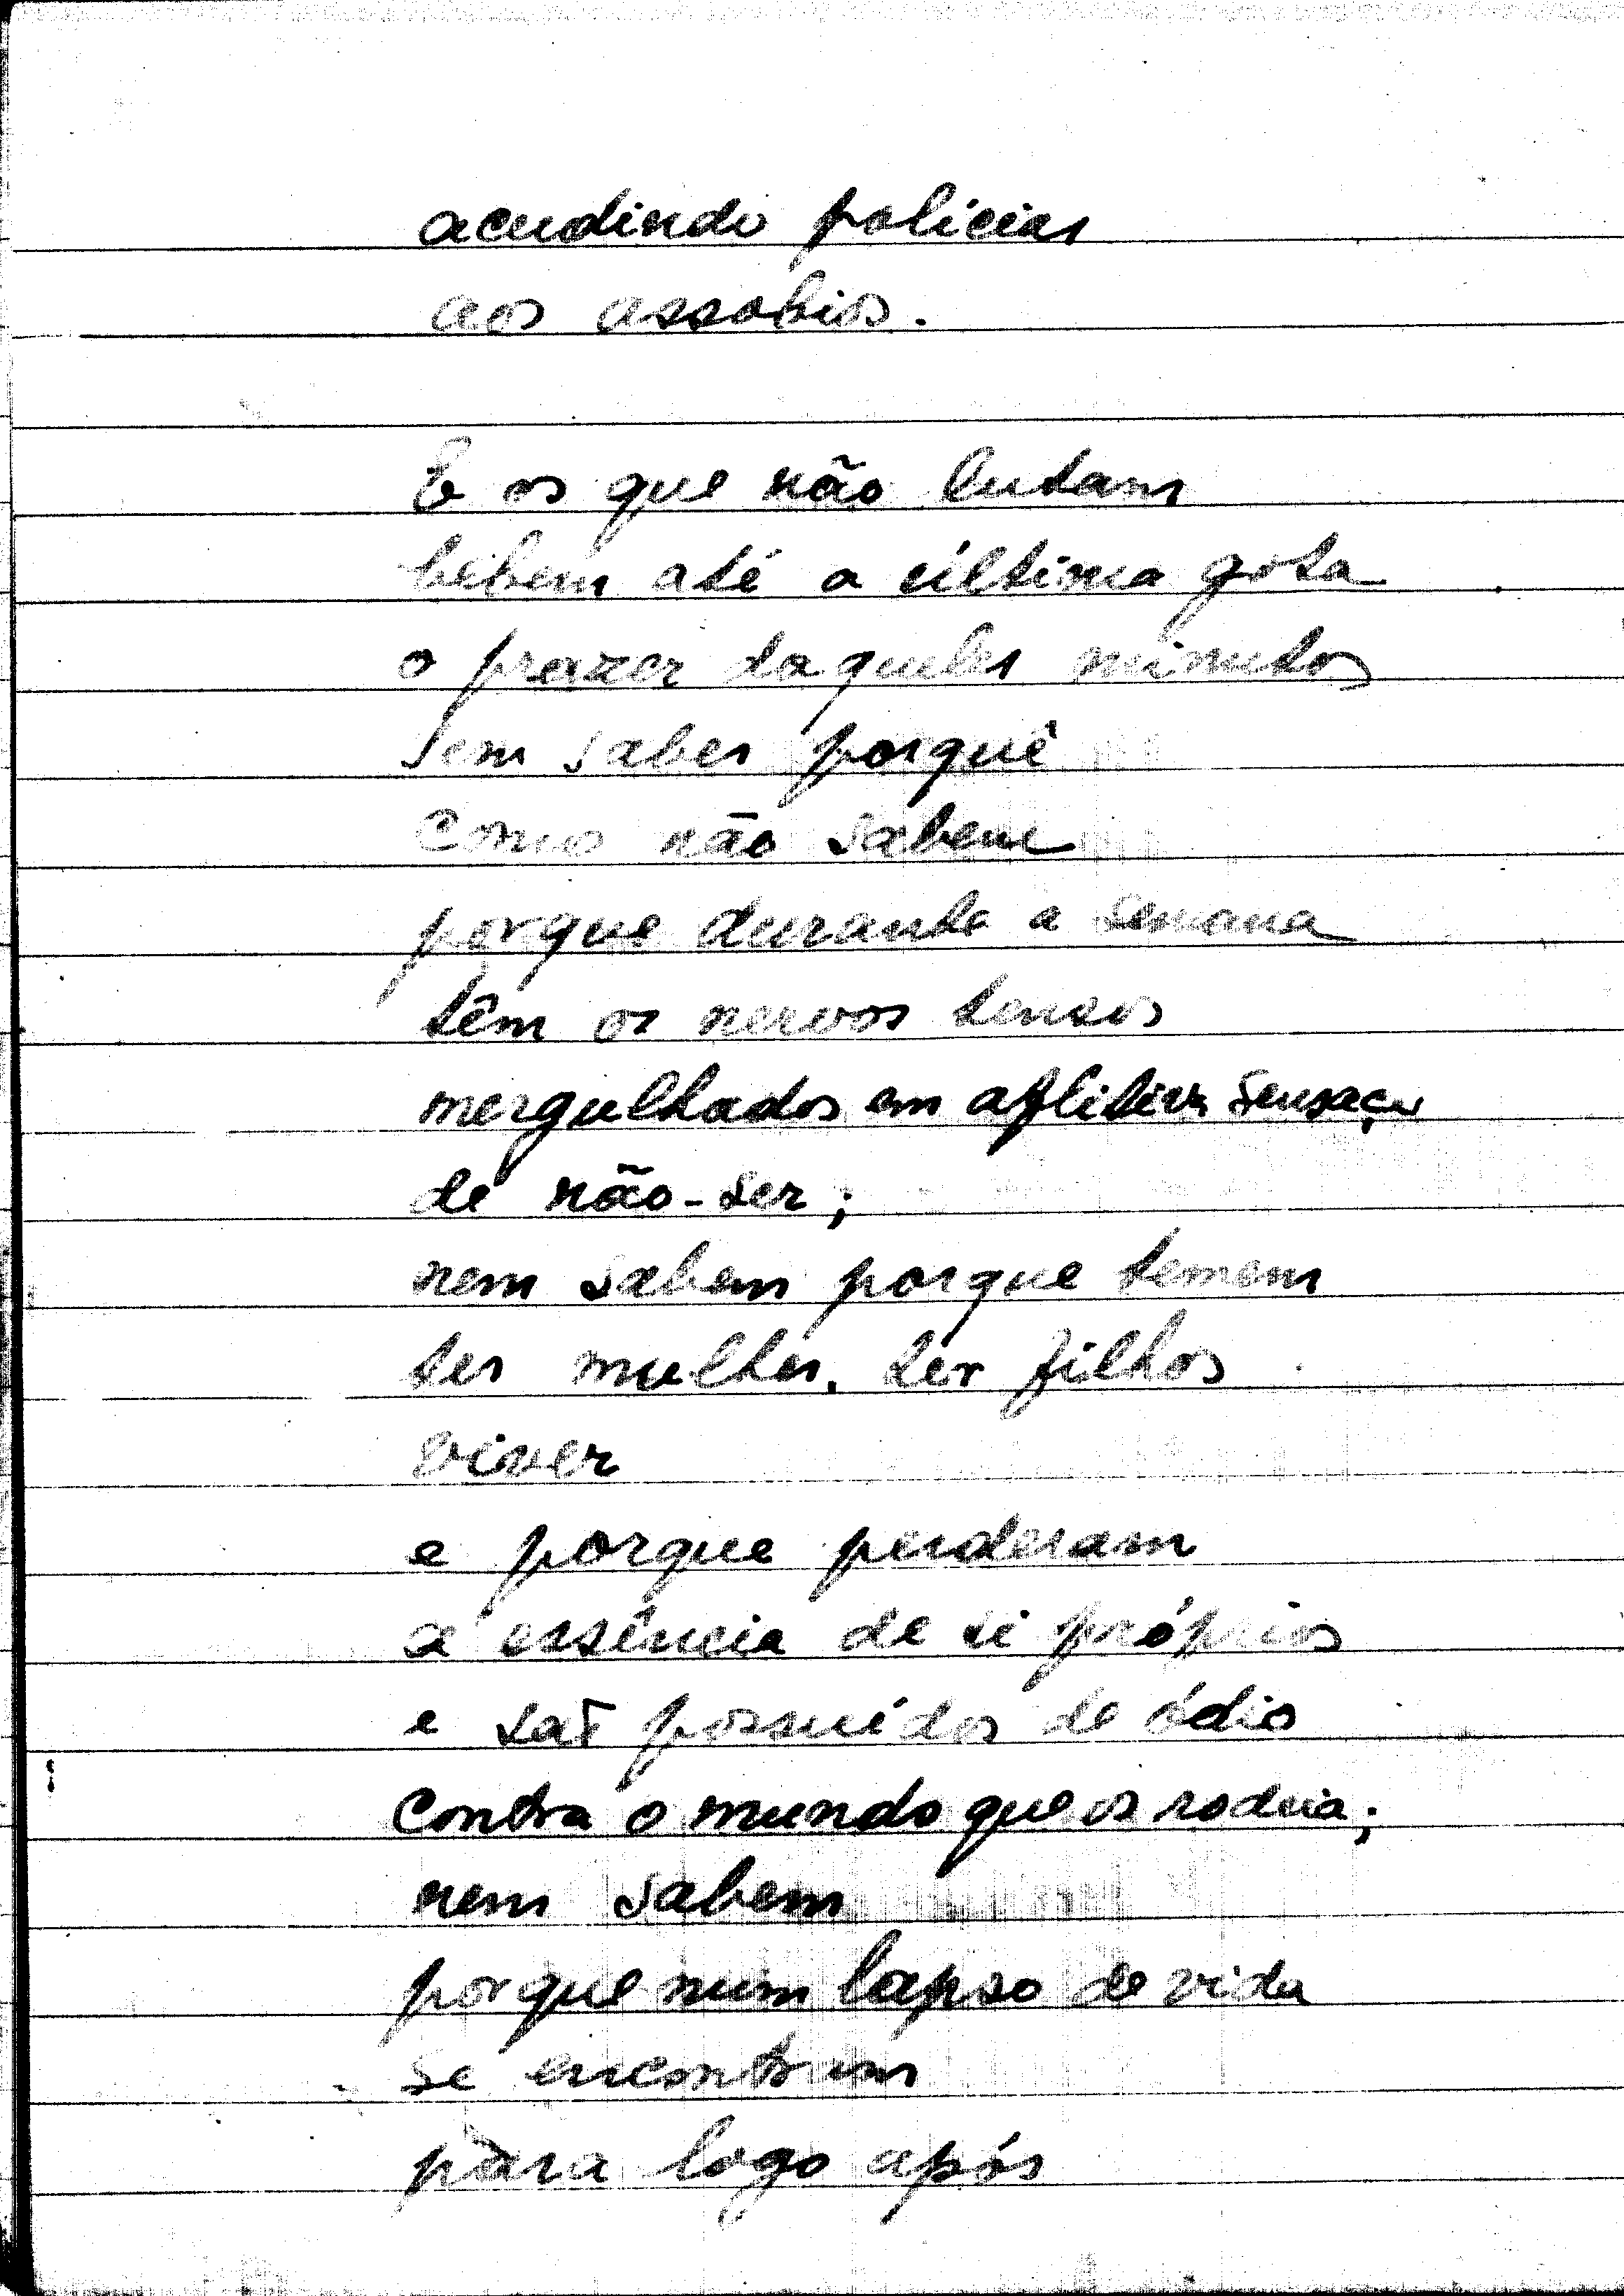 acudindo polícias
aos assobios.
E os que não lutam
bebem até a última gota
o prazer daqueles minutos
sem saber porquê
como não sabem
porque durante a semana
têm os nervos tensos
mergulhados em aflitiva sensação
de não-ser;
nem sabem porque temem
ter mulher, ter filhos
viver
e porque perderam
a essência de si próprios
e são possuídos de ódio
contra o mundo que os rodeia;
nem sabem
porque num lapso de vida
se encontram
para logo após